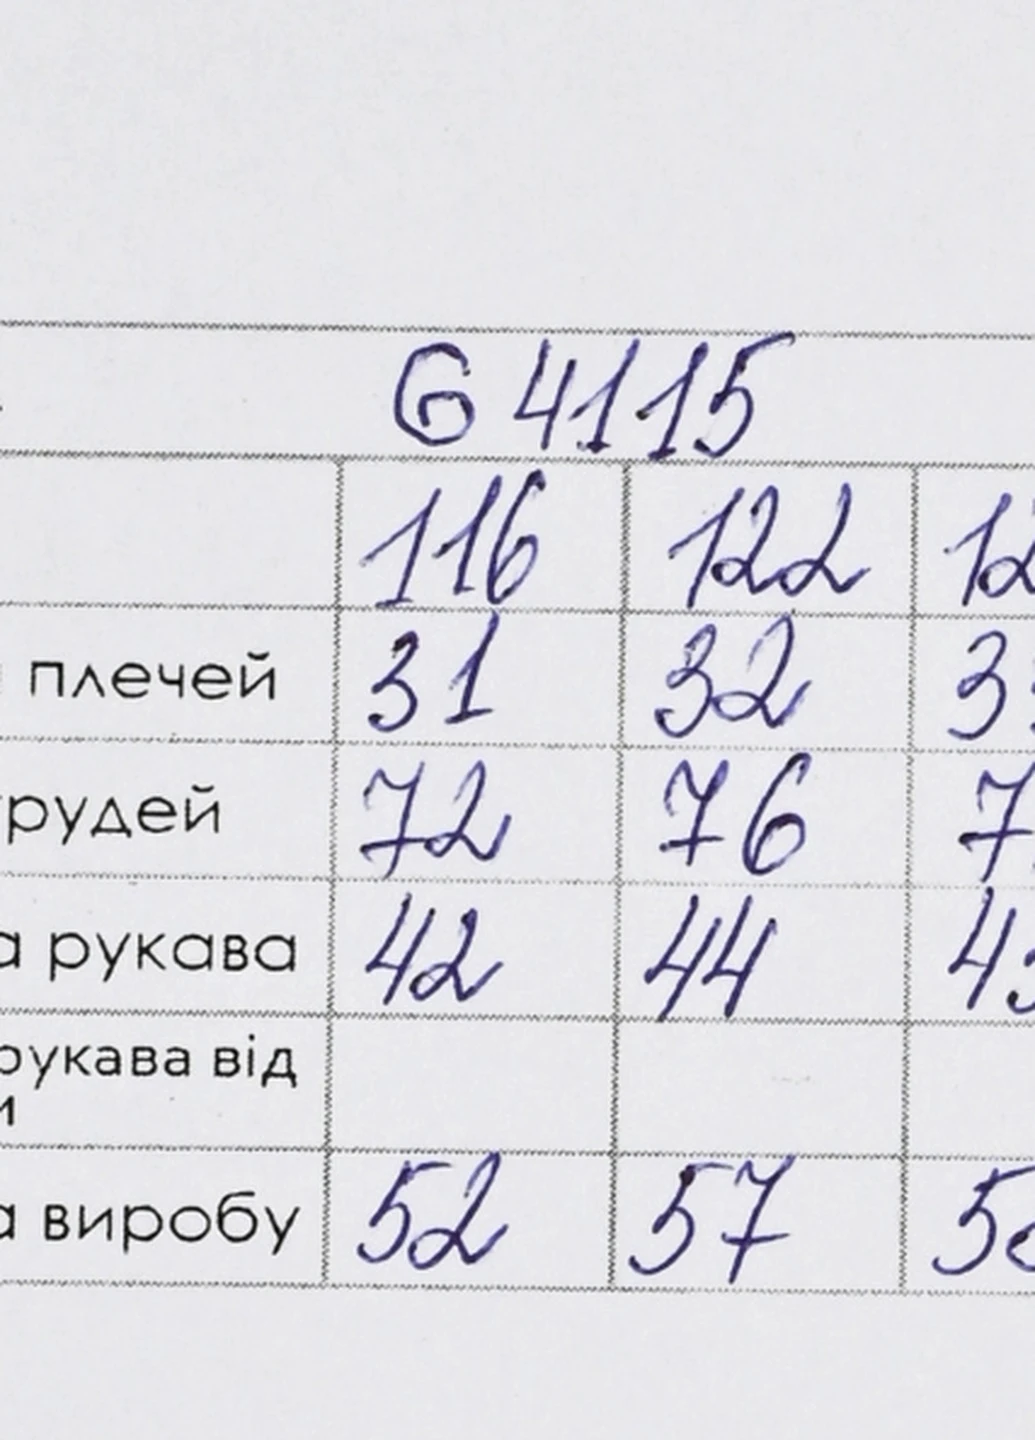 G 4115
116 122
плечей 31 32
грудей 72 76
рукава 42 44
рукава від
виробу 52 57